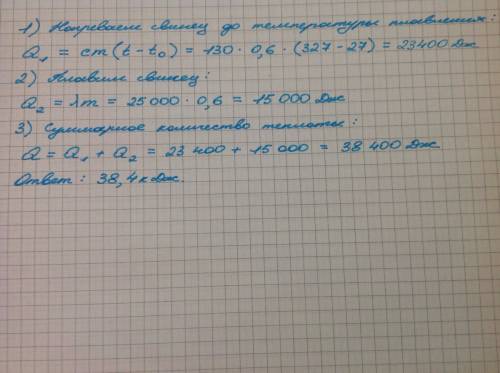 1) Нагреваем свинец до температуры плавления:
Q₁ = cm(t - t₀) = 130 · 0,6 · (327 - 27) = 23400 Дж
2) Плавим свинец:
Q₂ = λm = 25 000 · 0,6 = 15 000 Дж
3) Суммарное количество теплоты:
Q = Q₁ + Q₂ = 23 400 + 15 000 = 38 400 Дж
Ответ: 38,4 кДж.